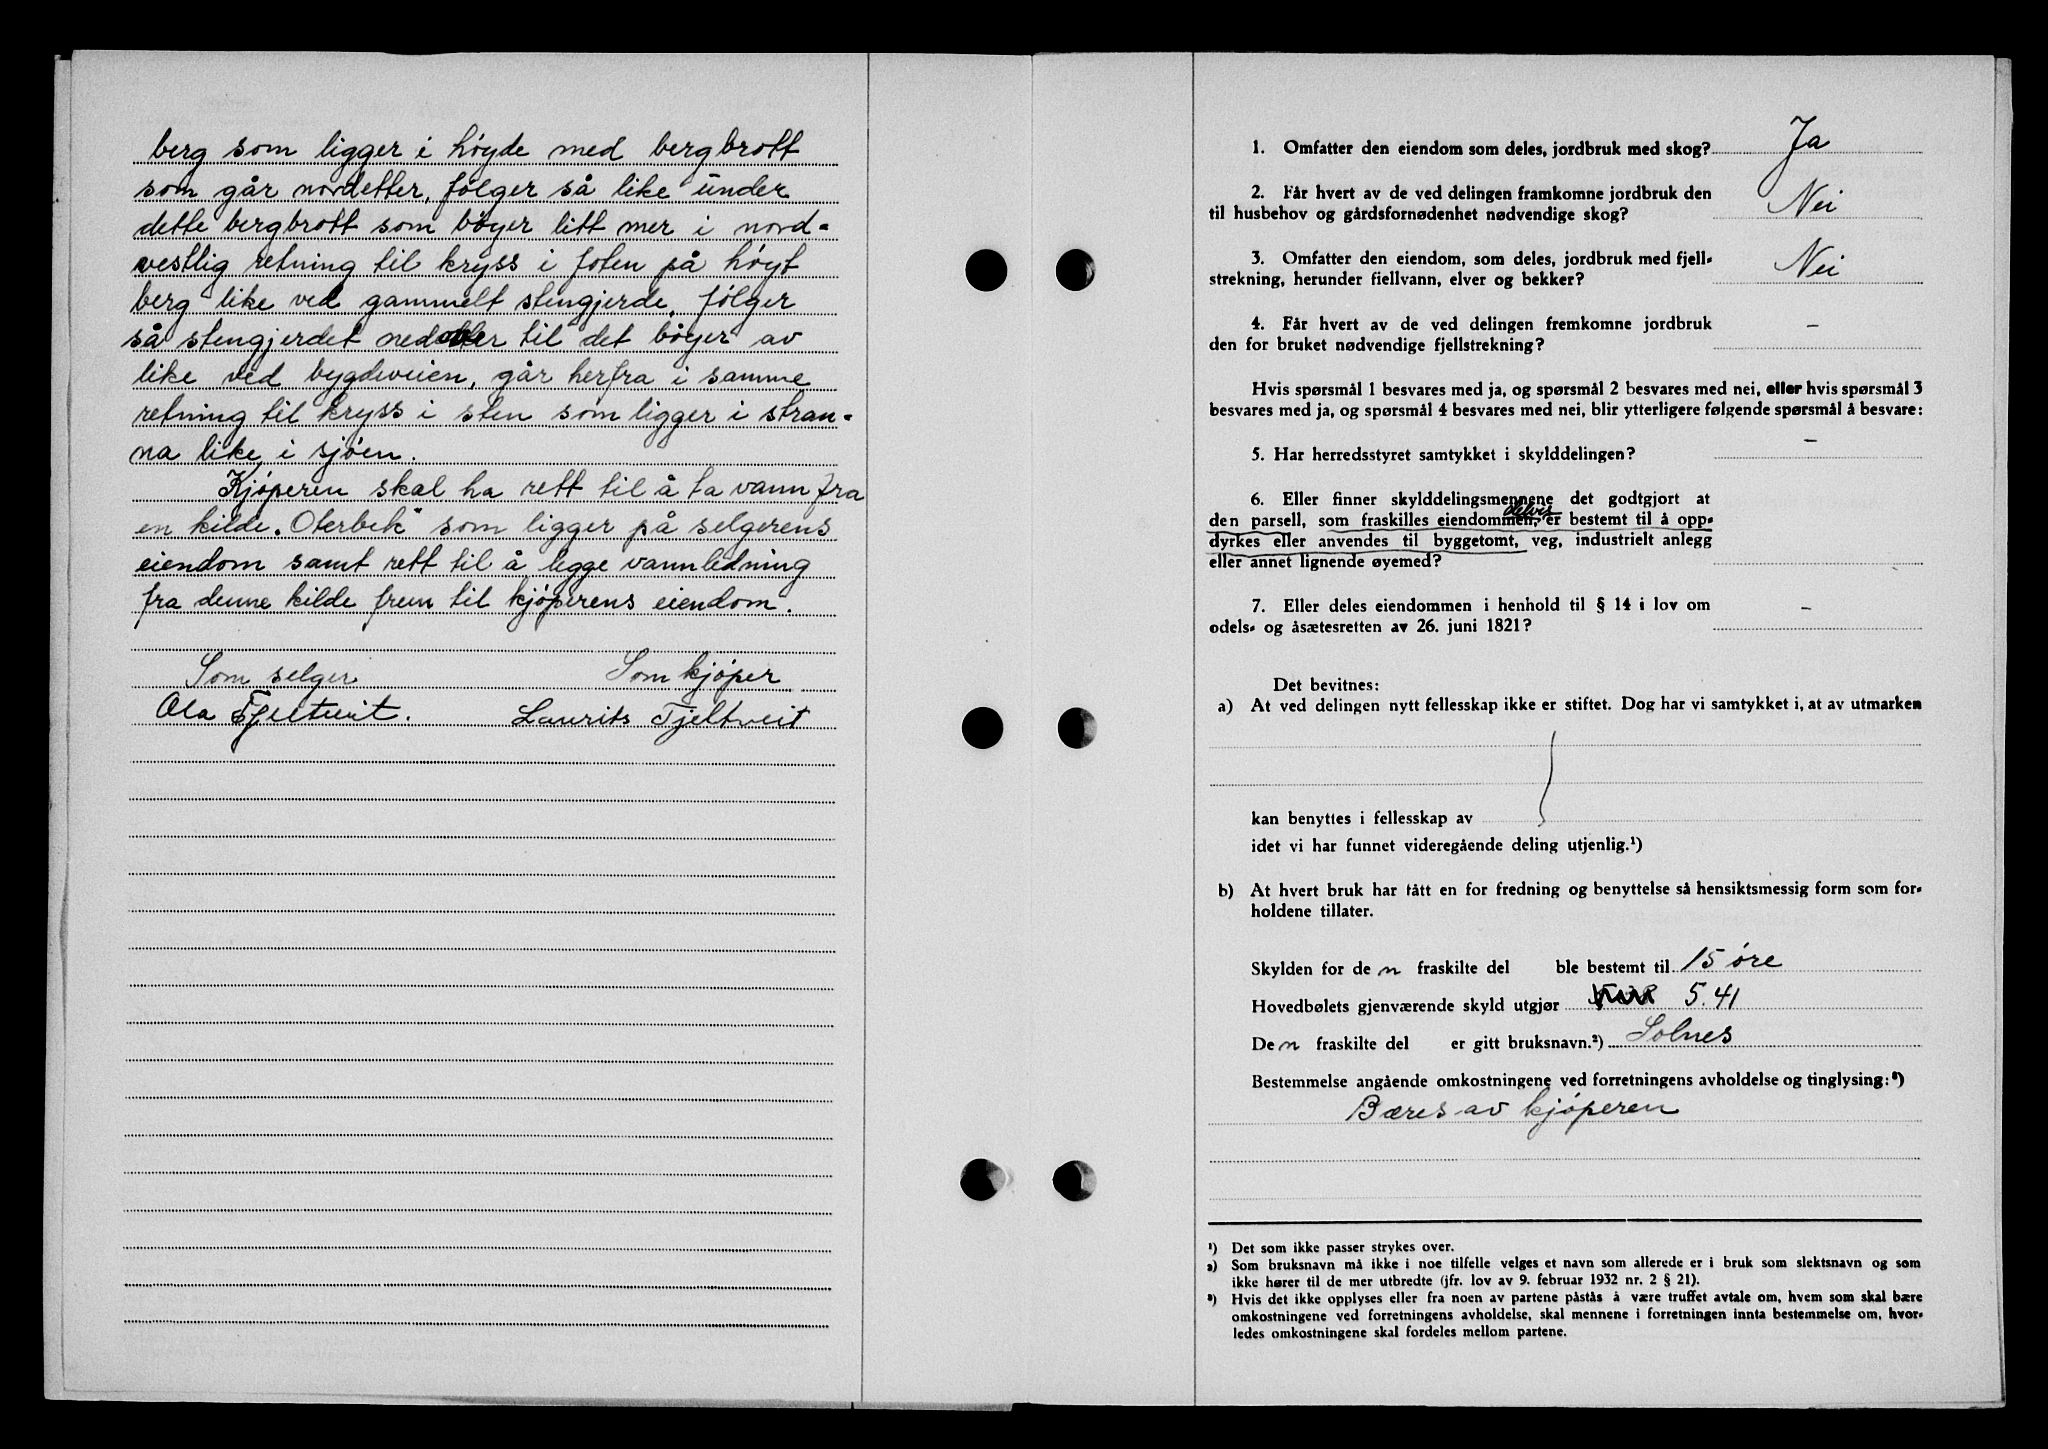 berg som ligger i høyde med bergbrott
som går nordetter, følger så like under
dette bergbrott som bøyer litt mer i nord-
vestlig retning til kryss i foten på høyt
berg like ved gammelt stengjerde, følger
så stengjerdet nedetter til det bøyer av
like ved bygdeveien, går herfra i samme
retning til kryss i sten som ligger i stran-
na like i sjøen.
Kjøperen skal ha rett til å ta vann fra
en kilde „Oterbek" som ligger på selgerens
eiendom samt rett til å legge vannledning
fra denne kilde frem til kjøperens eiendom.
Som selger Som kjøper
Ola Tjeltveit. Laurits Tjeltveit
1. Omfatter den eiendom som deles, jordbruk med skog? Ja
2. Får hvert av de ved delingen framkomne jordbruk den
til husbehov og gårdsfornødenhet nødvendige skog? Nei
3. Omfatter den eiendom, som deles, jordbruk med fjell-
strekning, herunder fiellvann, elver og bekker? Nei
4. Får hvert av de ved delingen fremkomne jordbruk
den for bruket nødvendige fjellstrekning? –
Hvis spørsmål 1 besvares med ja, og spørsmål 2 besvares med nei, eller hvis spørsmål 3
besvares med ja, og spørsmål 4 besvares med nei, blir ytterligere følgende spørsmål å besvare:
5. Har herredsstyret samtykket i skylddelingen? –
6. Eller finner skylddelingsmennene det godtgjort at
delvis
den parsell, som fraskilles eiendommen, er bestemt til å opp-
dyrkes eller anvendes til byggetomt, veg, industrielt anlegg
eller annet lignende øyemed?
7. Eller deles eiendommen i henhold til § 14 i lov om
odels- og åsætesretten av 26. juni 1821? –
Det bevitnes:
a) At ved delingen nytt fellesskap ikke er stiftet. Dog har vi samtykket i, at av utmarken
kan benyttes i fellesskap av
idet vi har funnet videregående deling utjenlig.¹)
b) At hvert bruk har fått en for fredning og benyttelse så hensiktsmessig form som for-
holdene tillater.
Skylden for den fraskilte del ble bestemt til 15 øre
Hovedbølets gjenværende skyld utgjør 5.41
Den fraskilte del er gitt bruksnavn.²) Solnes
Bestemmelse angående omkostningene ved forretningens avholdelse og tinglysing:³)
Bæres av kjøperen
¹) Det som ikke passer strykes over.
²) Som bruksnavn må ikke i noe tilfelle velges et navn som allerede er i bruk som slektsnavn og som
ikke hører til de mer utbredte (jfr. lov av 9. februar 1932 nr. 2 § 21).
³) Hvis det ikke opplyses eller fra noen av partene påstås å være truffet avtale om, hvem som skal bære
omkostningene ved forretningens avholdelse, skal mennene i forretningen innta bestemmelse om, hvor-
ledes omkostningene skal fordeles mellom partene.